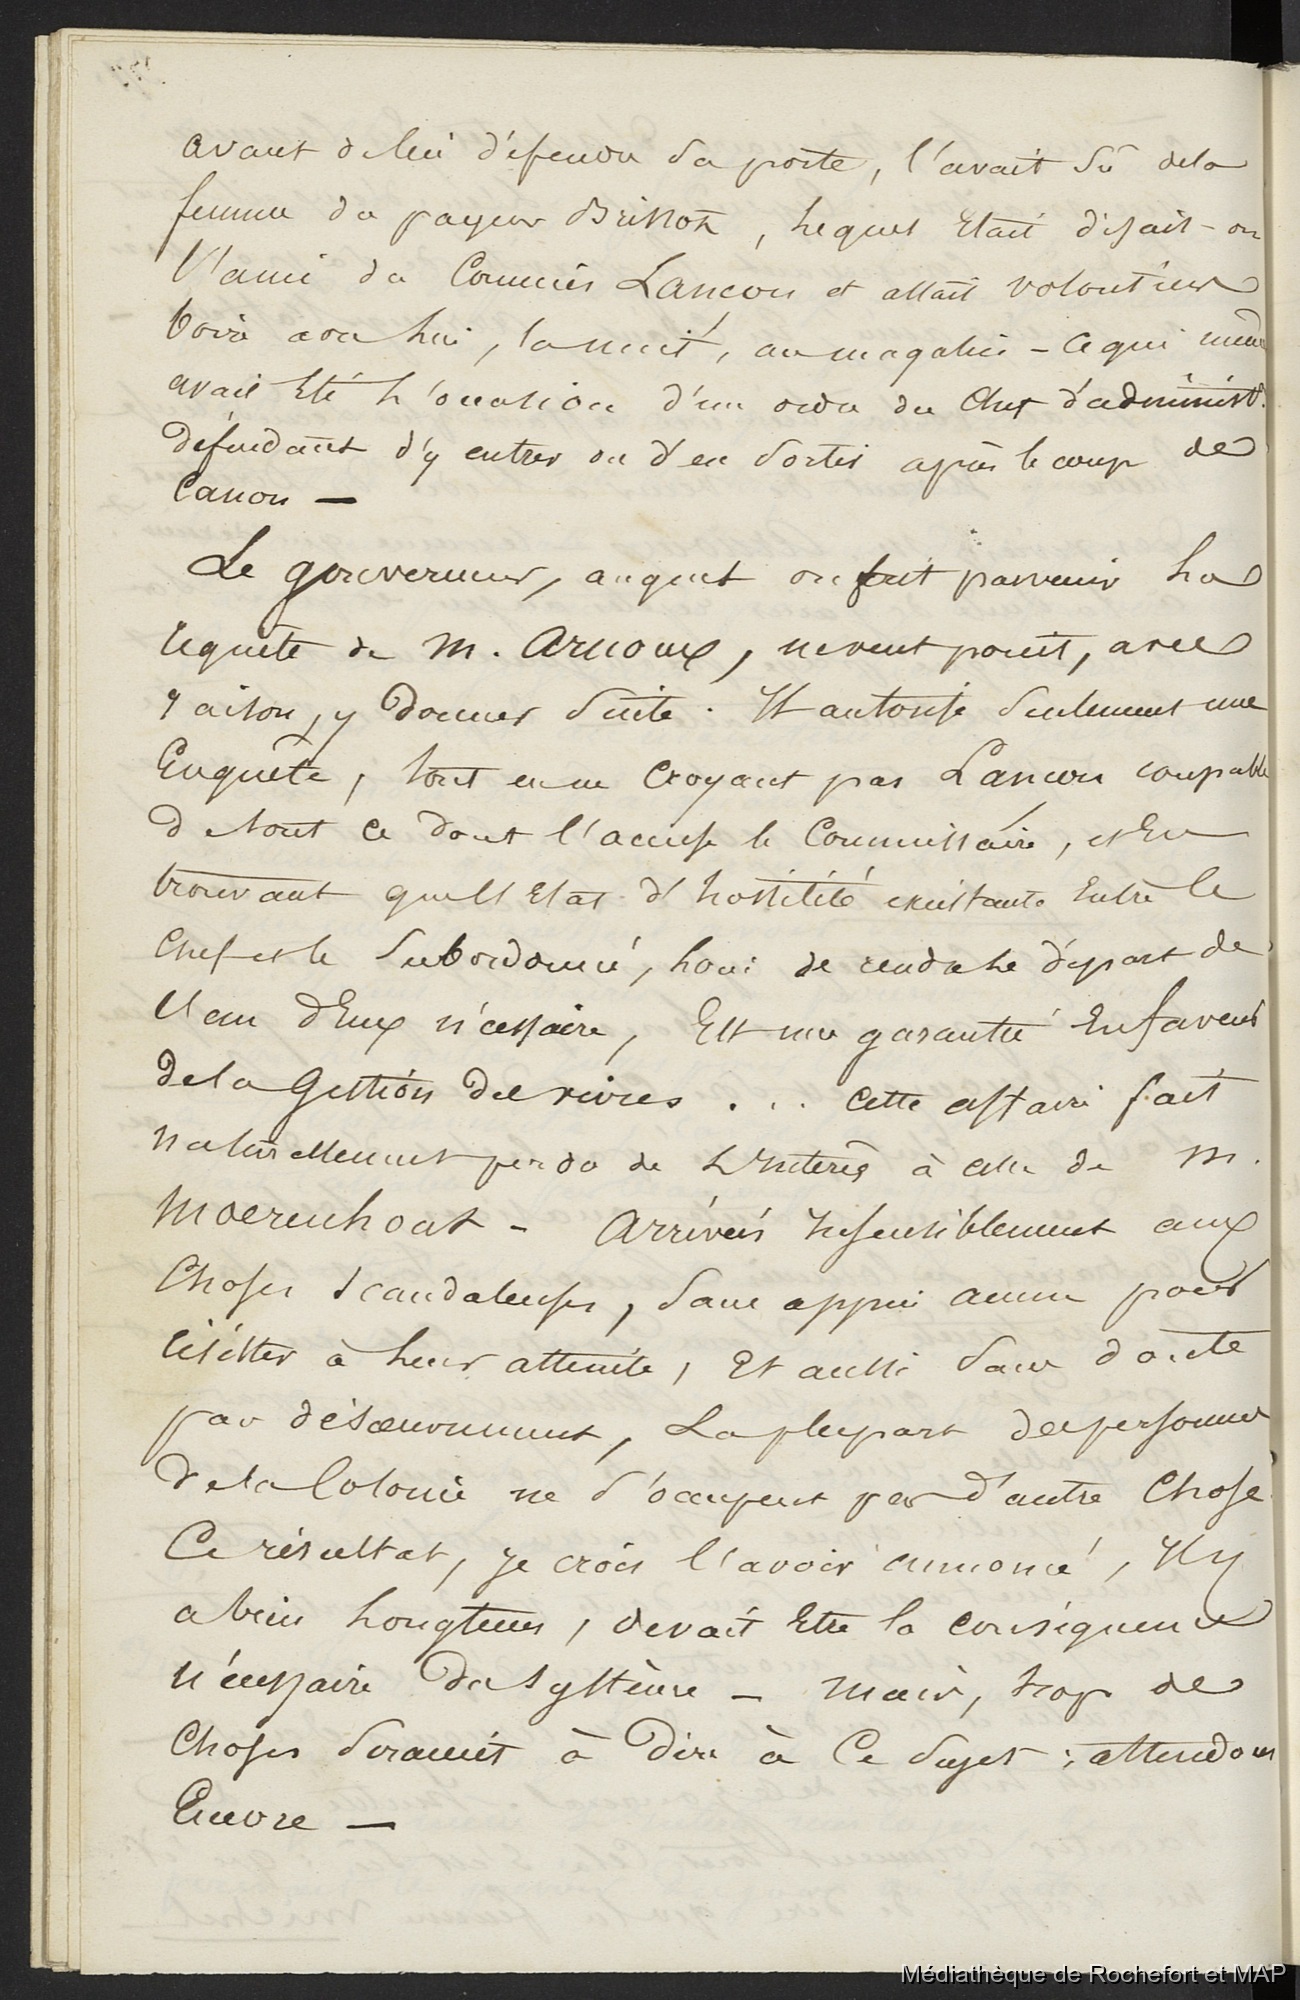 avant de lui défendre sa porte, l'avait sû dela
femme du payeur Brisson, lequel Etait disait-on
l'ami du Commis Lançon et allait volontiers
boire avec lui, la nuit, au magasin - ce qui même
avait Eté l'occasion d'un ordre du chef d'administ.
défendant d'y entrer ou d'en sortir après le coup de
Canon —
Le gouverneur, auquel on fait parvenir la
requête de M. Arnoux, ne veut point, avec
raison, y donner suite. Il autorise seulement une
Enquête, tout en ne croyant pas Lançon coupable
de tout ce dont l'accuse le Commissaire, et En
trouvant que l'Etat d'hostilité existante Entre le
chef et le subordonné, loin de rendre le départ de
l'un d'Eux nécessaire, Est une garantie En faveur
de la Gestion des vivres ... cette affaire fait
naturellement perdre de l'Intérêt à celle de M.
Moerenhout - Arrivés Insensiblement aux
choses scandaleuses, sans appui aucun pour
résister à leur atteinte, Et aussi sans doute
par désœuvrement, La plupart des personnes
de la Colonie ne s'occupent pas d'autre chose.
Ce résultat, je crois l'avoir annoncé, Il y
a bien longtems, devait Etre la conséquence
nécessaire du système - mais, trop de
choses seraient à dire à ce sujet ; attendons
Encore —
Médiathèque de Rochefort et MAP